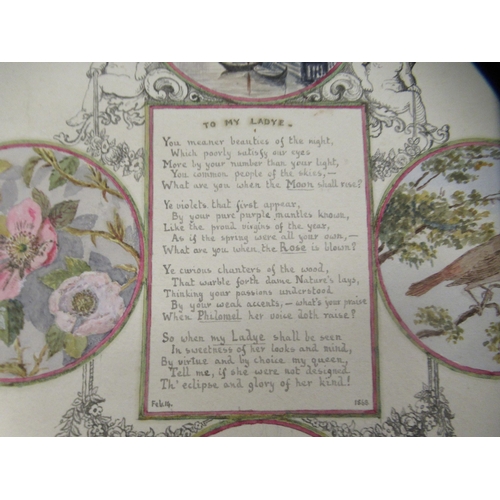 TO MY LADYE.
You meaner beauties of the night,
Which poorly satisfy our eyes
More by your number than your light,
You common people of the skies,—
What are you when the Moon shall rise?
Ye violets that first appear,
By your pure purple mantles known,
Like the proud virgins of the year,
As if the spring were all your own,—
What are you when the Rose is blown?
Ye curious chanters of the wood,
That warble forth dame Nature's lays,
Thinking your passions understood
By your weak accents,—what's your praise
When Philomel her voice doth raise?
So when my Ladye shall be seen
In sweetness of her looks and mind,
By virtue and by choice my queen,
Tell me, if she were not designed
Th' eclipse and glory of her kind!
Feb.14.